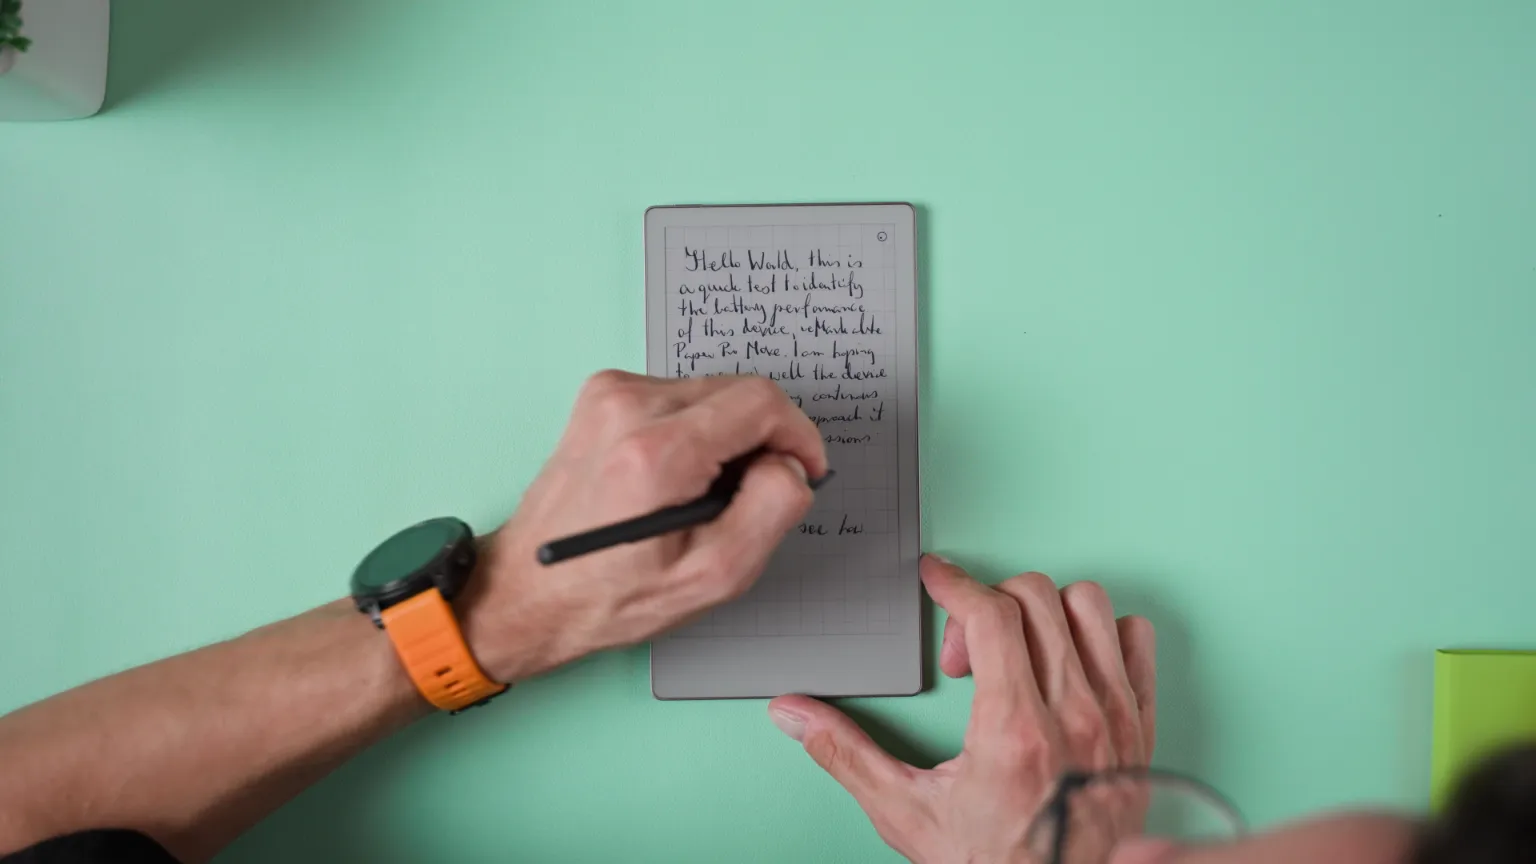 Hello World, this is
a quick test to identify
the battery performance
of this device, reMarkable
Paper Pro Move. I am hoping
to well the device
continuous
approach it
see how